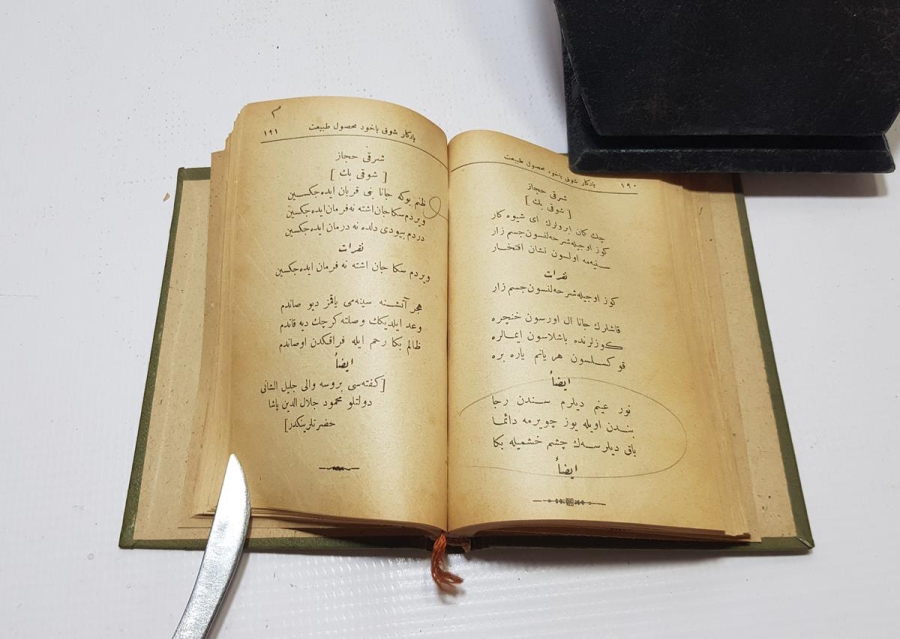 ١٩٠
یادکار شوقی یاخود محصول طبیعت
شرقی حجاز
[ شوقی بك ]
چك کمان ابرولرك ای شیوه کار
کوز اوجیله شرحه لنسون جسم زار
سینه مه اولسون نشان افتخار
نقرات
کوز اوجیله شرحه لنسون جسم زار
قاشلرك جانا ال اورسون خنجره
کوزلرنده باشلاسون ایمالره
قو کسلسون هر یانم یاره بره
ایضاً
نور عینم دیلرم سندن رجا
بندن اویله یوز چویرمه دائما
باق دیلرسه ك چشم خشمیله بکا
ایضاً
١٩١
یادکار شوقی یاخود محصول طبیعت
شرقی حجاز
[ شوقی بك ]
ظنم بوکه جانا بنی قربان ایده جکسین
ویردم سکا جان اشته نه فرمان ایده جکسین
دردم بیودی دلده نه درمان ایده جکسین
نقرات
ویردم سکا جان اشته نه فرمان ایده جکسین
هجر آتشنه سینه می یاقمز دیو صاندم
وعد ایلدیکك وصلته کرچك دیه قاندم
ظالم بکا رحم ایله فراقکدن اوصاندم
ایضاً
[کفته سی بروسه والی جلیل الشانی
دولتلو محمود جلال الدین پاشا
حضرتلرینکدر]